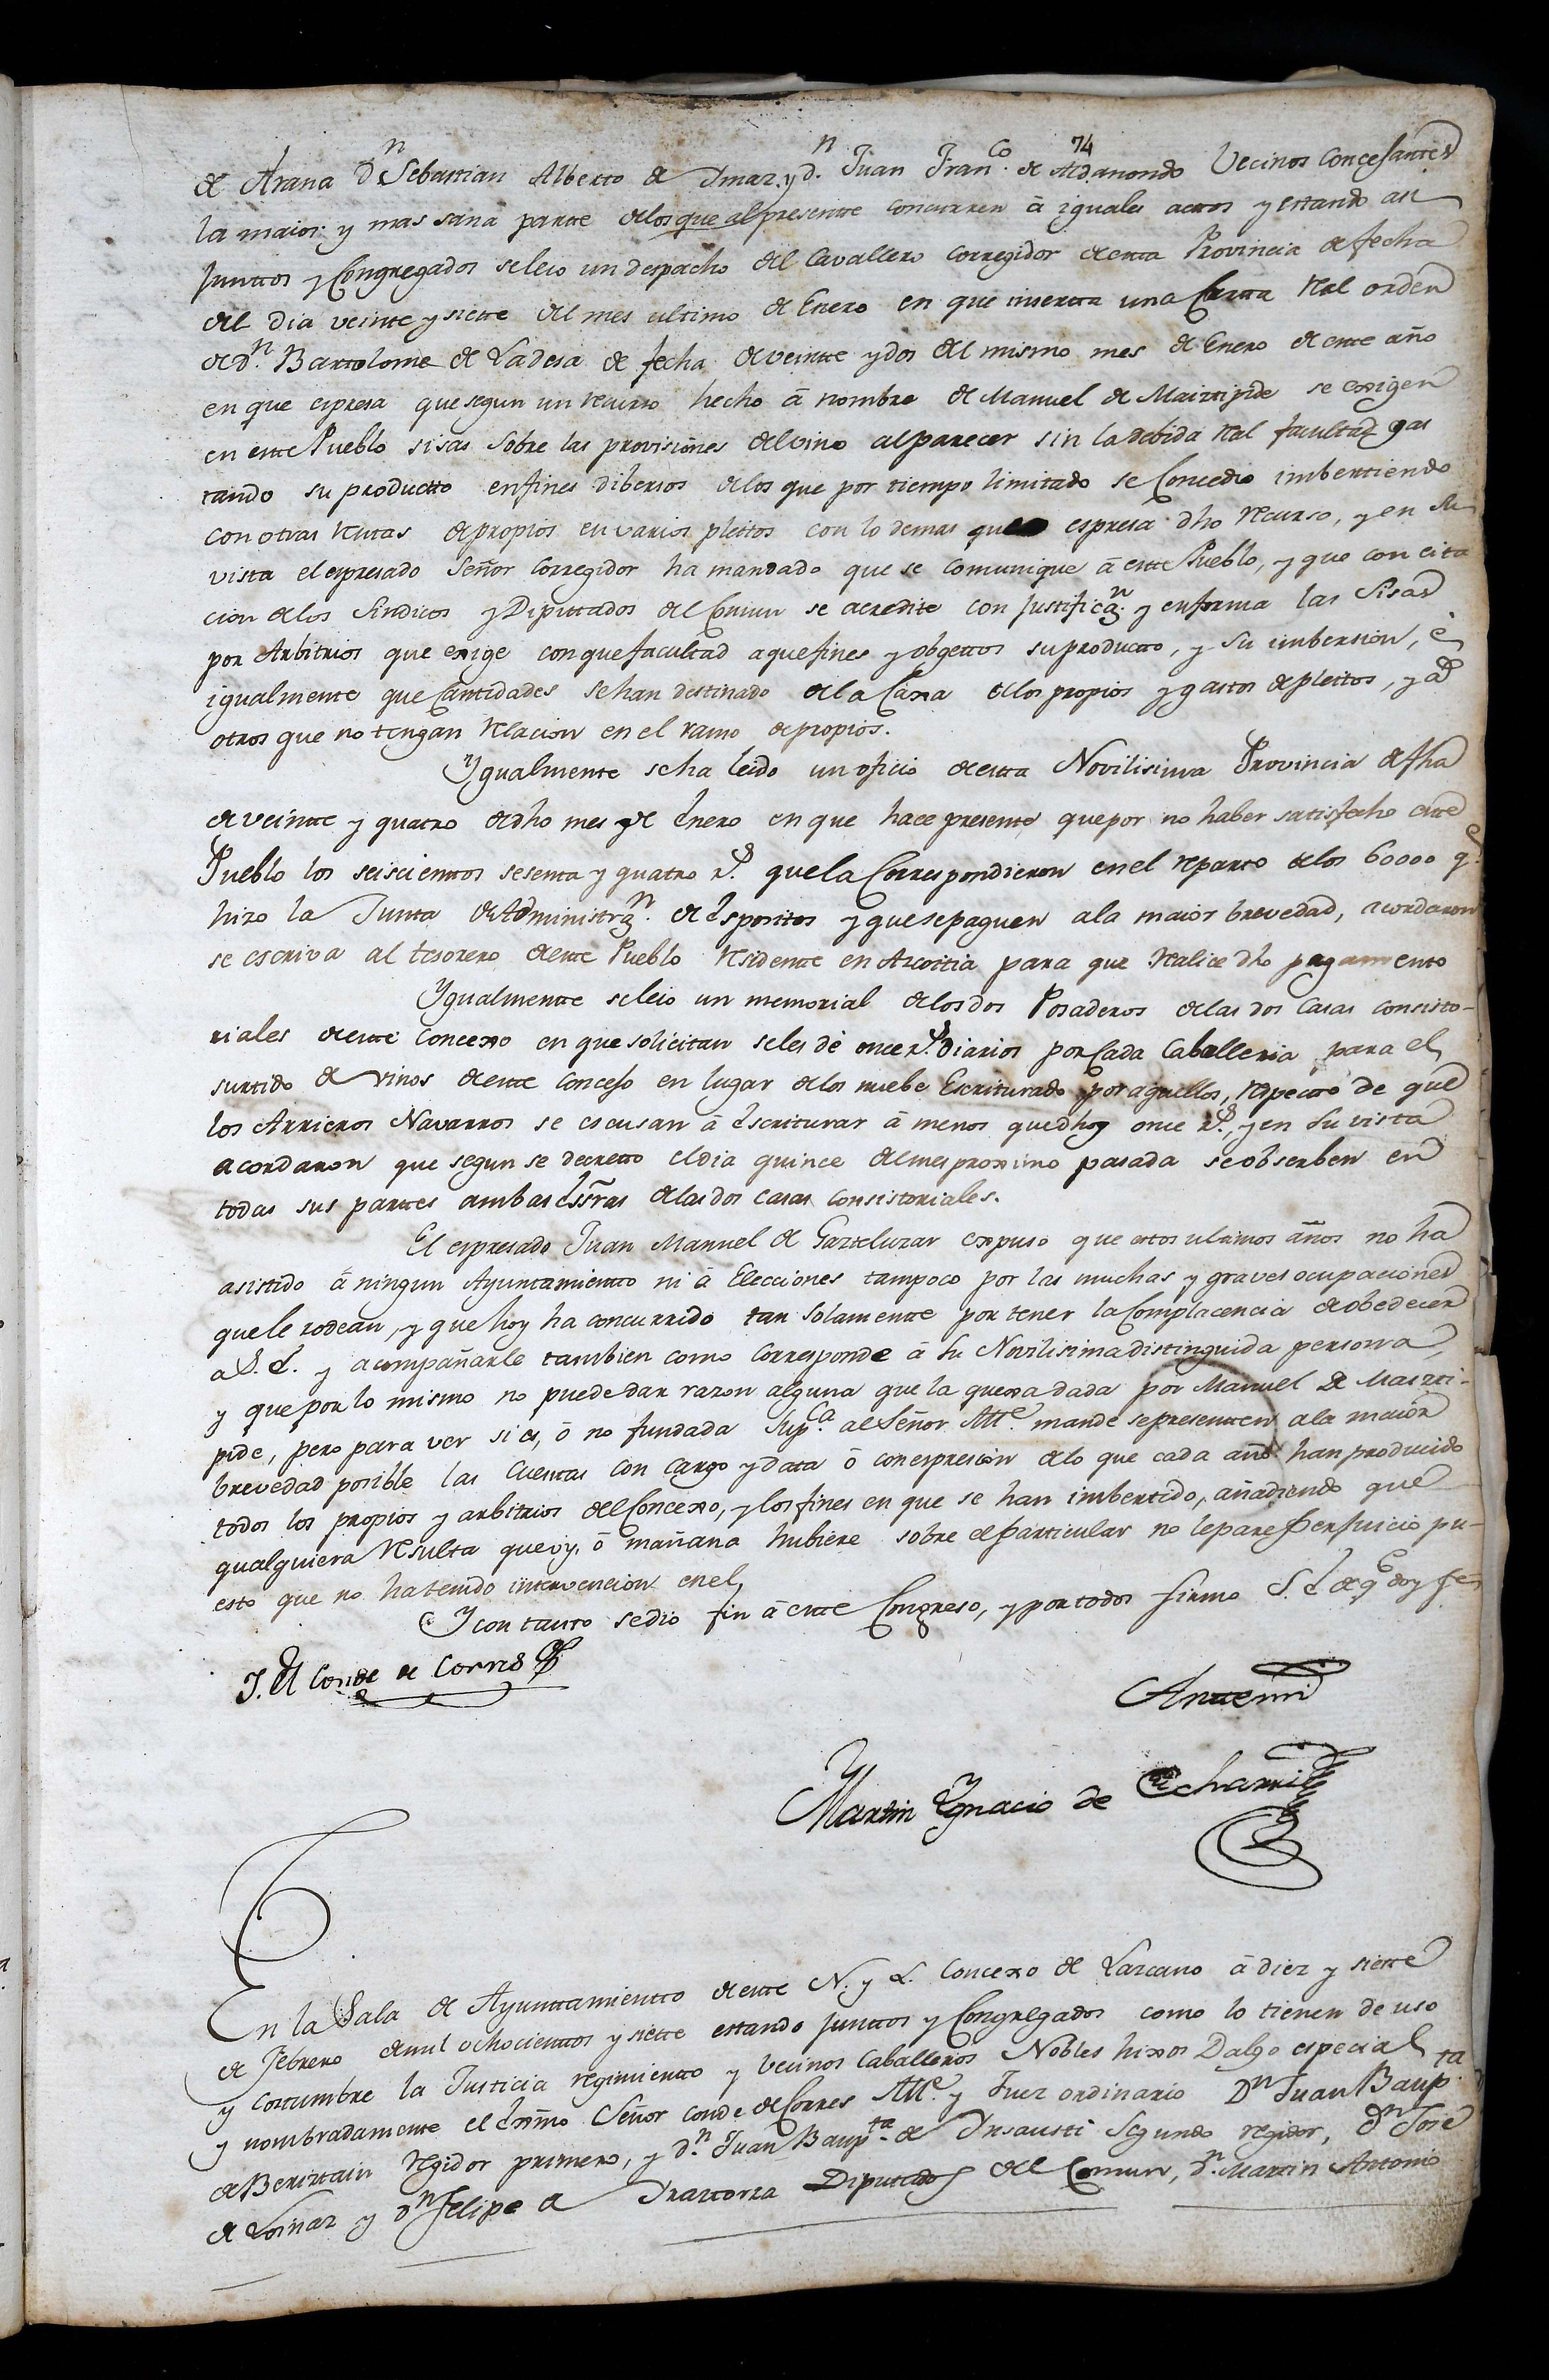 74
de Arana Dn Sebastian Alberto de Imaz, y dn. Juan Franco. de Aldanondo Vecinos Concejantes
la maior y mas sana parte delos que al presente concurren á iguales actos y estando asi
Junttos y Congregados se leio un despacho del Cavallero Corregidor de esta Provincia de fecha
del dia veinte y siette del mes ultimo de Enero en que inserta una Carta Real orden
de dn. Bartolome de La desa de fecha de veintte y dos del mismo mes de Enero de este año
en que espresa que segun un recurso hecho á nombre de Manuel de se exigen
en este Pueblo sisas Sobre las provisiones del vino al parecer sin la debida Real facultad gas
tando su productto en fines dibersos delos que por tiempo limitado se Concedio imbertiendo
con otras rentas de propios en varios pleitos con lo demas que espresa dho recurso, y en su
vista el espresado Señor Corregidor ha mandado que se comunique á este Pueblo, y que con cita
cion delos Sindicos y Diputados del Comun se acredite con Justificazn. y en forma las Sisas
por Arbitrios que exige con que facultad a que fines y obgettos su productto, y su imbersion, é
igualmente que Cantidades se han destinado de la Caxa de los propios y gastos de pleitos, y a
otros que no tengan relacion en el ramo de propios.
Ygualmente se ha leido un oficio de esta Novilisima Provincia de fha
de veintte y quatro de dho mes de Enero en que hace presente que por no haber satisfecho este
Pueblo los seiscienttos sesenta y quatro rs. que la Correspondieron en el reparto de los 60000 qe.
hizo la Junta de Administrazn. de Espositos y que se paguen a la maior brevedad, acordaron
se escriva al tesorero de este Pueblo residente en Azcoitia para que realice dho pagamento
Ygualmente se leio un memorial de los dos Posaderos de las dos Casas consisto-
riales de este Concexo en que solicitan se les dé once rs. diarios por Cada Caballeria para el
surtido de vinos de este Concejo en lugar de los nuebe Escriturado por aquellos, respecto de que
los Arrieros Navarros se escusan á Escriturar á menos que dhos once rs., y en su vista
acordaron que segun se decretto el dia quince del mes proximo pasada se obserben en
todas sus partes ambas Essras de las dos casas Consistoriales.
El espresado Juan Manuel de Gazteluzar expuso que estos ultimos años no ha
asistido á ningun Ayuntamientto ni á Elecciones tampoco por las muchas y graves ocupaciones
que le rodean, y que hoy ha concurrido tan solamente por tener la Complacencia de obedecer
a S. E. y acompañarle tambien como Corresponde á su Novilisima distinguida persona,
y que por lo mismo no puede dar razon alguna que la quexa dada por Manuel de
pide, pero para ver si es, ó no fundada supca. al Señor Alle. mande se presentten a la maior
brevedad posible las Cuentas con Cargo y data ó con espresion de lo que cada año han producido
todos los propios y arbitrios del Concexo, y los fines en que se han imbertido, añadiendo que
qualquiera resulta que oy, ó mañana hubiere sobre el particular no le pare perjuicio pu-
esto que no ha tenido intervencion en el,
Y con tanto se dio fin á este Congreso, y por todos firmo S. E. de qe doy fe
J. El Conde de Corres
Ante mi
Martin Ygnacio de Echarri
En la Sala de Ayunttamientto de este N. y L. Concexo de Lazcano á diez y siette
de Febrero de mil ochocienttos y siette estando junttos y Congregados como lo tienen de uso
y costumbre la Justicia regimientto y Vecinos Caballeros Nobles hixos Dalgo especial
y nombradamente el Exmo Señor Conde de Corres Alle. y Juez ordinario Dn Juan Baupta.
de Beriztain regidor primero, y dn. Juan Baupta. de Insausti Segundo regidor, Dn José
de Loinaz y Dn Felipe de Iraztorza Diputados del Comun, dn. Martin Antonio